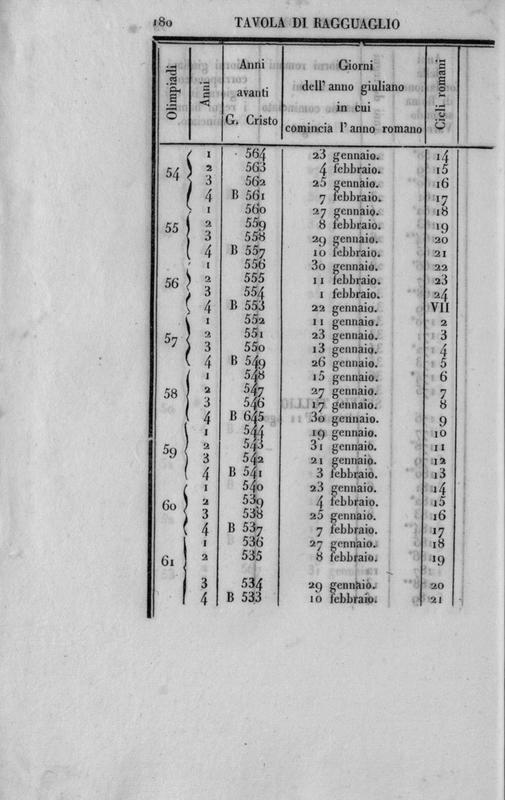 180 TAVOLA DI RAGGUAGLIO
Olimpiadi Anni Anni avanti G. Cristo Giorni dell' anno giuliano in cui comincia l' anno romano Cicli romani
54 1 564 23 gennaio. 14
2 563 4 febbraio. 15
3 562 25 gennaio. 16
4 B 561 7 febbraio. 17
55 1 560 27 gennaio. 18
2 559 8 febbraio. 19
3 558 29 gennaio. 20
4 B 557 10 febbraio. 21
56 1 556 30 gennaio. 22
2 555 11 febbraio. 23
3 554 1 febbraio. 24
4 B 553 22 gennaio. VII
57 1 552 11 gennaio. 2
2 551 23 gennaio. 3
3 550 13 gennaio. 4
4 B 549 26 gennaio. 5
58 1 548 15 gennaio. 6
2 547 27 gennaio. 7
3 546 17 gennaio. 8
4 B 645 30 gennaio. 9
59 1 544 19 gennaio. 10
2 543 31 gennaio. 11
3 542 21 gennaio. 12
4 B 541 3 febbraio. 13
60 1 540 23 gennaio. 14
2 539 4 febbraio. 15
3 538 25 gennaio. 16
4 B 537 7 febbraio. 17
61 1 536 27 gennaio. 18
2 535 8 febbraio. 19
3 534 29 gennaio. 20
4 B 533 10 febbraio. 21